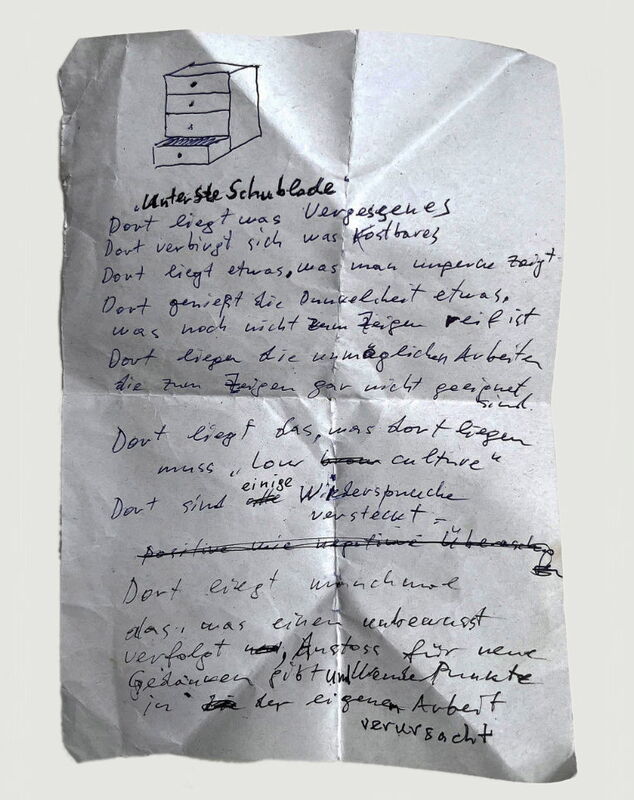 "Unterste Schublade"
Dort liegt was Vergessenes
Dort verbirgt sich was Kostbares
Dort liegt etwas, was man ungerne zeigt
Dort genießt die Dunkelheit etwas,
was noch nicht zum Zeigen reif ist
Dort liegen die unmöglichen Arbeiten
die zum Zeigen gar nicht geeignet
sind.
Dort liegt das, was dort liegen
muss „Low culture"
einige
Dort sind Wiedersprueche
versteckt –
positive wie negative
Dort liegt manchmal
das, was einen unbewusst
verfolgt, Anstoss für neue
Gedanken gibt und Wende Punkte
in der eigenen Arbeit
verursacht